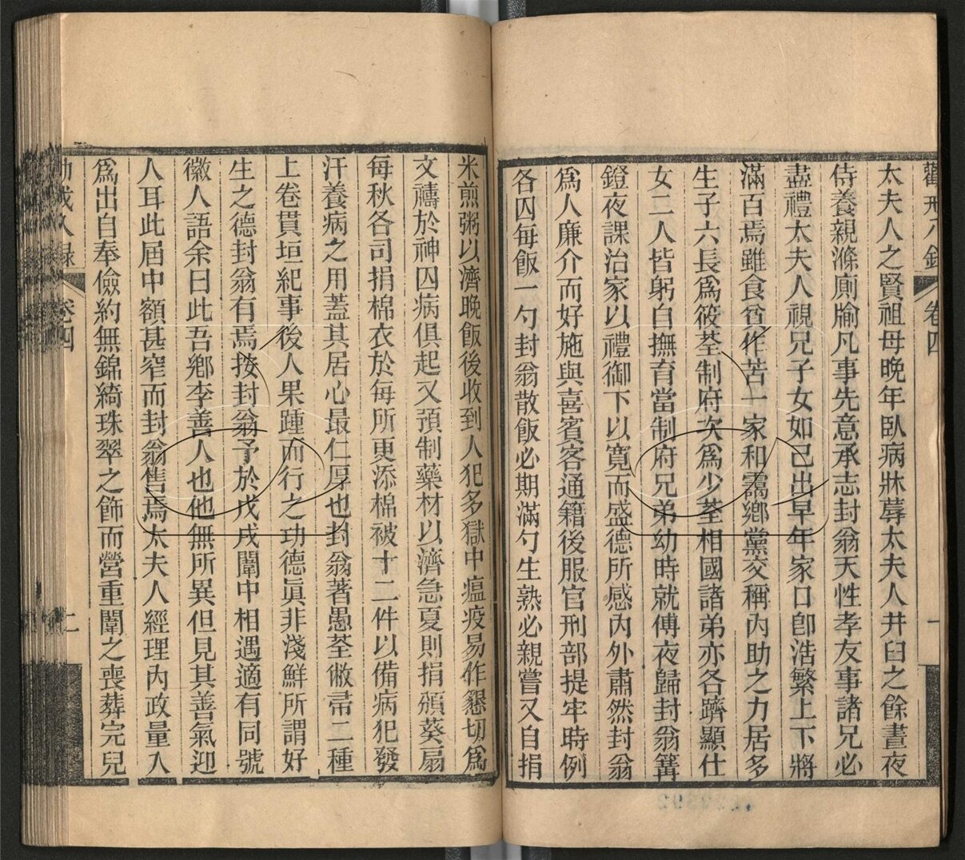 太夫人之賢祖母晚年臥病牀蓐太夫人井臼之餘晝夜
侍養親滌廁牏凡事先意承志封翁天性孝友事諸兄必
盡禮太夫人視兄子女如己出早年家口卽浩繁上下將
滿百焉雖食貧作苦一家和靄鄉黨交稱內助之力居多
生子六長爲筱荃制府次爲少荃相國諸弟亦各躋顯仕
女二人皆躬自撫育當制府兄弟幼時就傅夜歸封翁篝
鐙夜課治家以禮御下以寬而盛德所感內外肅然封翁
爲人廉介而好施與喜賓客通籍後服官刑部提牢時例
各囚每飯一勺封翁散飯必期滿勺生熟必親嘗又自捐
米煎粥以濟晚飯後收到人犯多獄中瘟疫易作懇切爲
文禱於神囚病俱起又預制藥材以濟急夏則捐頒葵扇
每秋各司捐棉衣於每所更添棉被十二件以備病犯發
汗養病之用蓋其居心最仁厚也封翁著愚荃敝帚二種
上卷貫垣紀事後人果踵而行之功德眞非淺鮮所謂好
生之德封翁有焉按封翁予於戊戌闈中相遇適有同號
徽人語余曰此吾鄉李善人也他無所異但見其善氣迎
人耳此屆中額甚窄而封翁售焉太夫人經理內政量入
爲出自奉儉約無錦綺珠翠之飾而營重闈之喪葬完兒
卷四
二